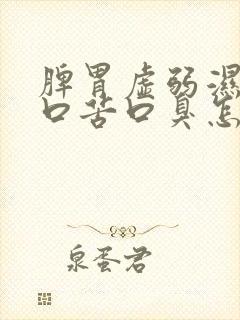 脾胃虚弱濕
口苦口臭怎
泉蛋君